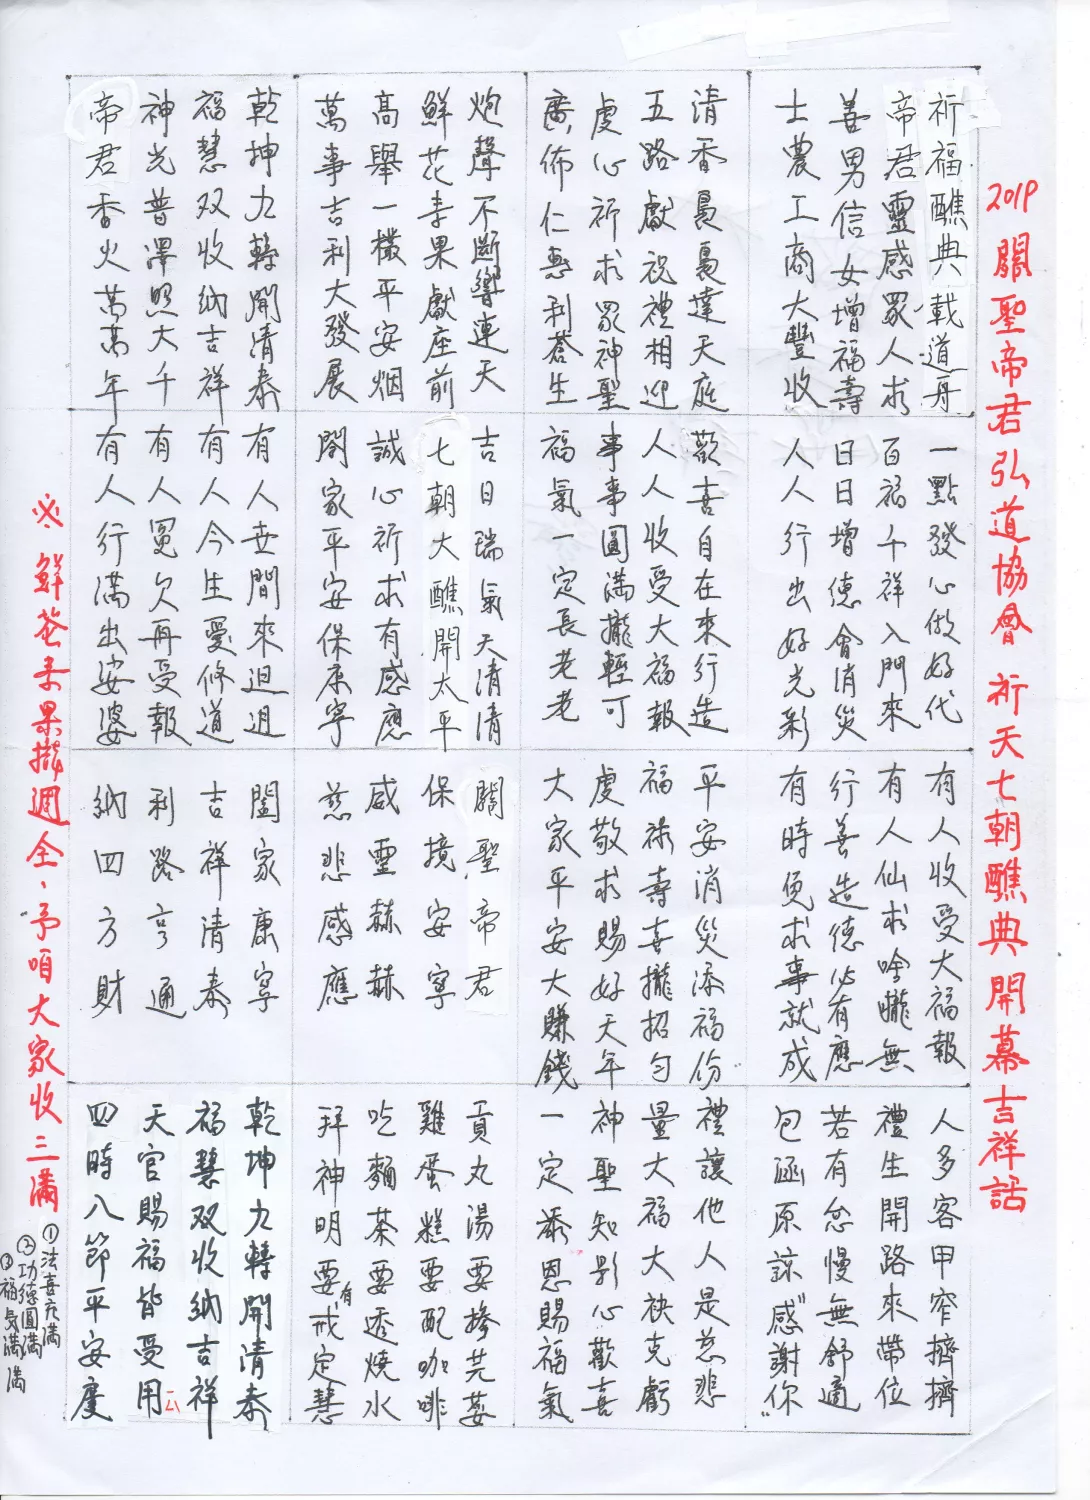 2019 關聖帝君弘道協會 祈天七朝醮典開幕吉祥話
祈福醮典載道舟
帝君靈感眾人求
善男信女增福壽
士農工商大豐收
清香裊裊達天庭
五路獻祝禮相迎
虔心祈求眾神聖
廣佈仁惠利蒼生
炮聲不斷響連天
鮮花素果獻座前
高舉一欉平安烟
萬事吉利大發展
乾坤九轉開清泰
福慧双收納吉祥
神光普澤照大千
帝君香火萬萬年
一點發心做好代
百福千祥入門來
日日增德會消災
人人行出好光彩
歡喜自在來行造
人人收受大福報
事事圓滿攏輕可
福氣一定長老老
吉日瑞氣天清清
七朝大醮開太平
誠心祈求有感應
閤家平安保康寧
有人世間來迌迌
有人今生愛修道
有人冤欠再受報
有人行滿出娑婆
有人收受大福報
有人仙求唅嚨無
行善造德必有應
有時免求事就成
平安消災添福份
福祿壽喜攏招勻
虔敬求賜好天年
大家平安大賺錢
關聖帝君
保境安寧
威靈赫赫
慈悲感應
闔家康寧
吉祥清泰
利路亨通
納四方財
人多客甲窄擠擠
禮生開路來帶位
若有怠慢無舒適
包涵原諒"感謝你"
禮讓他人是慈悲
量大福大袂克虧
神聖知影心歡喜
一定添恩賜福氣
貢丸湯要摻芫荽
雞蛋糕要配咖啡
吃麵茶要透燒水
拜神明要有戒定慧
乾坤九轉開清泰
福慧双收納吉祥
天官賜福皆受用
四時八節平安度
※鮮花素果攏週全、予咱大家收三滿
①法喜充滿
②功德圓滿
③福氣滿滿